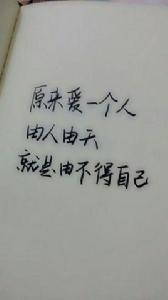 原来爱一个人
由人由天
就是由不得自己